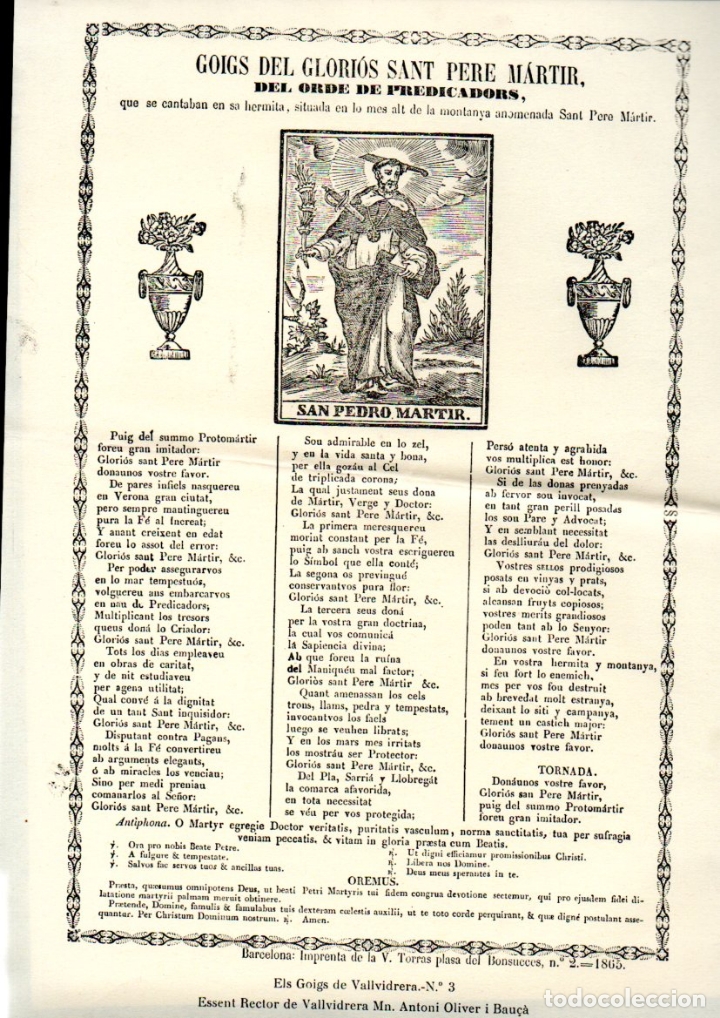 GOIGS DEL GLORIÓS SANT PERE MÁRTIR,
DEL ORDE DE PREDICADORS,
que se cantaban en sa hermita, situada en lo mes alt de la montanya anomenada Sant Pere Mártir.
SAN PEDRO MARTIR.
Puig del summo Protomártir
foreu gran imitador:
Gloriós sant Pere Mártir
donaunos vostre favor.
De pares infiels nasquereu
en Verona gran ciutat,
pero sempre mantinguereu
pura la Fé al Increat;
Y anant creixent en edat
foreu lo assot del error:
Gloriós sant Pere Mártir, &c.
Per poder assegurarvos
en lo mar tempestuós,
volguereu ans embarcarvos
en nau de Predicadors;
Multiplicant los tresors
queus doná lo Criador:
Gloriós sant Pere Mártir, &c.
Tots los dias empleaveu
en obras de caritat,
y de nit estudiaveu
per agena utilitat;
Qual convé á la dignitat
de un tant Sant inquisidor:
Gloriós sant Pere Mártir, &c.
Disputant contra Pagans,
molts á la Fé convertireu
ab arguments elegants,
ó ab miracles los venciau;
Sino per medi preniau
comanarlos al Señor:
Gloriós sant Pere Mártir, &c.
Sou admirable en lo zel,
y en la vida santa y bona,
per ella gozáu al Cel
de triplicada corona;
La qual justament seus dona
de Mártir, Verge y Doctor:
Gloriós sant Pere Mártir, &c.
La primera meresquereu
morint constant per la Fé,
puig ab sanch vostra escriguereu
lo Símbol que ella conté;
La segona os previngué
conservantvos pura flor:
Gloriós sant Pere Mártir, &c.
La tercera seus doná
per la vostra gran doctrina,
la cual vos comunicá
lá Sapiencia divina;
Ab que foreu la ruína
del Maniquéu mal factor;
Gloriós sant Pere Mártir &c.
Quant amenassan los cels
trons, llams, pedra y tempestats,
invocantvos los faels
luego se veuhen librats;
Y en los mars mes irritats
los mostráu ser Protector:
Gloriós sant Pere Mártir, &c.
Del Pla, Sarriá y Llobregát
la comarca afavorida,
en tota necessitat
se véu per vos protegida;
Persó atenta y agrahida
vos multiplica est honor:
Gloriós sant Pere Mártir, &c.
Si de las donas prenyadas
ab fervor sou invocat,
en tant gran perill posadas
los sou Pare y Advocat;
Y en semblant necessitat
las deslliuráu del dolor:
Gloriós sant Pere Mártir, &c.
Vostres SELLOS prodigiosos
posats en vinyas y prats,
si ab devoció col-locats,
alcansan fruyts copiosos;
vostres merits grandiosos
poden tant ab lo Senyor:
Gloriós sant Pere Mártir
donaunos vostre favor.
En vostra hermita y montanya,
si feu fort lo enemich,
mes per vos fou destruit
ab brevedat molt estranya,
deixant lo siti y campanya,
tement un castich major:
Gloriós sant Pere Mártir
donaunos vostre favor.
TORNADA.
Donáunos vostre favor,
Gloriós san Pere Mártir,
puig del summo Protomártir
foreu gran imitador.
Antiphona. O Martyr egregie Doctor veritatis, puritatis vasculum, norma sanctitatis, tua per sufragia
veniam peccatis, & vitam in gloria præsta cum Beatis.
℣. Ora pro nobis Beate Petre.
℣. A fulgure & tempestate.
℣. Salvos fac servos tuos & ancillas tuas.
℟. Ut digni efficiamur promissionibus Christi.
℟. Libera nos Domine.
℟. Deus meus sperantes in te.
OREMUS.
Præsta, quæsumus omnipotens Deus, ut beati Petri Martyris tui fidem congrua devotione sectemur, qui pro ejusdem fidei di-
latatione martyrii palmam meruit obtinere.
Prætende, Domine, famulis & famulabus tuis dexteram cœlestis auxilii, ut te toto corde perquirant, & quæ digné postulant asse-
quantur. Per Christum Dominum nostrum. ℟. Amen.
Barcelona: Imprenta de la V. Torras plasa del Bonsucces, n.º 2.=1865.
Els Goigs de Vallvidrera.-N.º 3
Essent Rector de Vallvidrera Mn. Antoni Oliver i Bauçà
todocoleccion